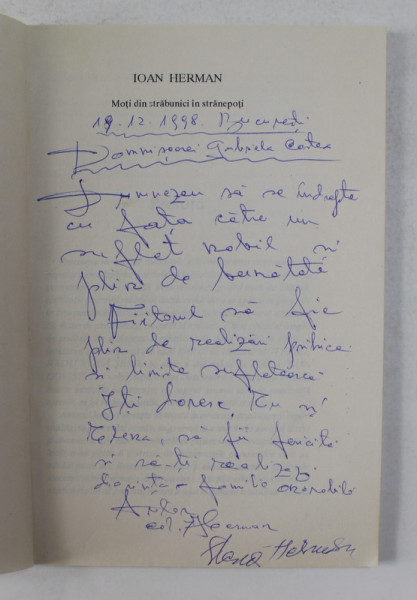 IOAN HERMAN
Moți din străbunici în strănepoți
19.12.1998 București
Domnișoarei Gabriela
Dumnezeu să se îndrepte
cu fața către un
suflet nobil și
plin de bunătate
Viitorul să fie
plin de realizări
și liniște sufletească
Îți doresc, Tu și
să fii fericită
și să-ți realizezi
dorința
Autor
col. Herman
Herman